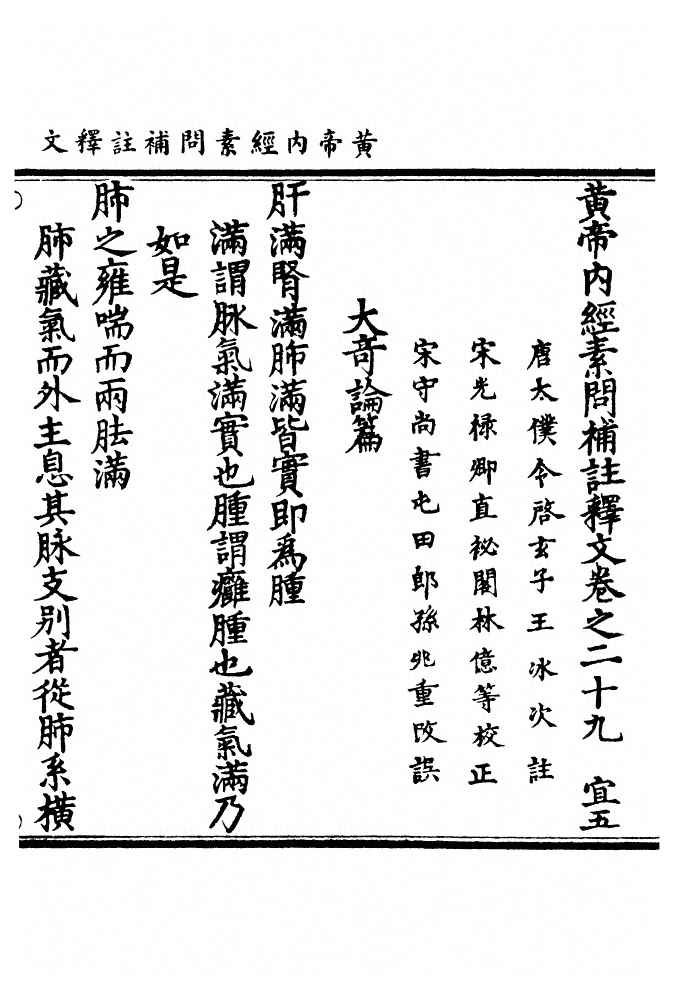 黃帝內經素問補註釋文
黃帝內經素問補註釋文卷之二十九　宜五
唐太僕令啓玄子王冰次註
宋光祿卿直祕閣林億等校正
宋守尚書屯田郎孫兆重改誤
大奇論篇
肝滿腎滿肺滿皆實即爲腫
滿謂脉氣滿實也腫謂癰腫也藏氣滿乃
如是
肺之雍喘而兩胠滿
肺藏氣而外主息其脉支别者從肺系橫